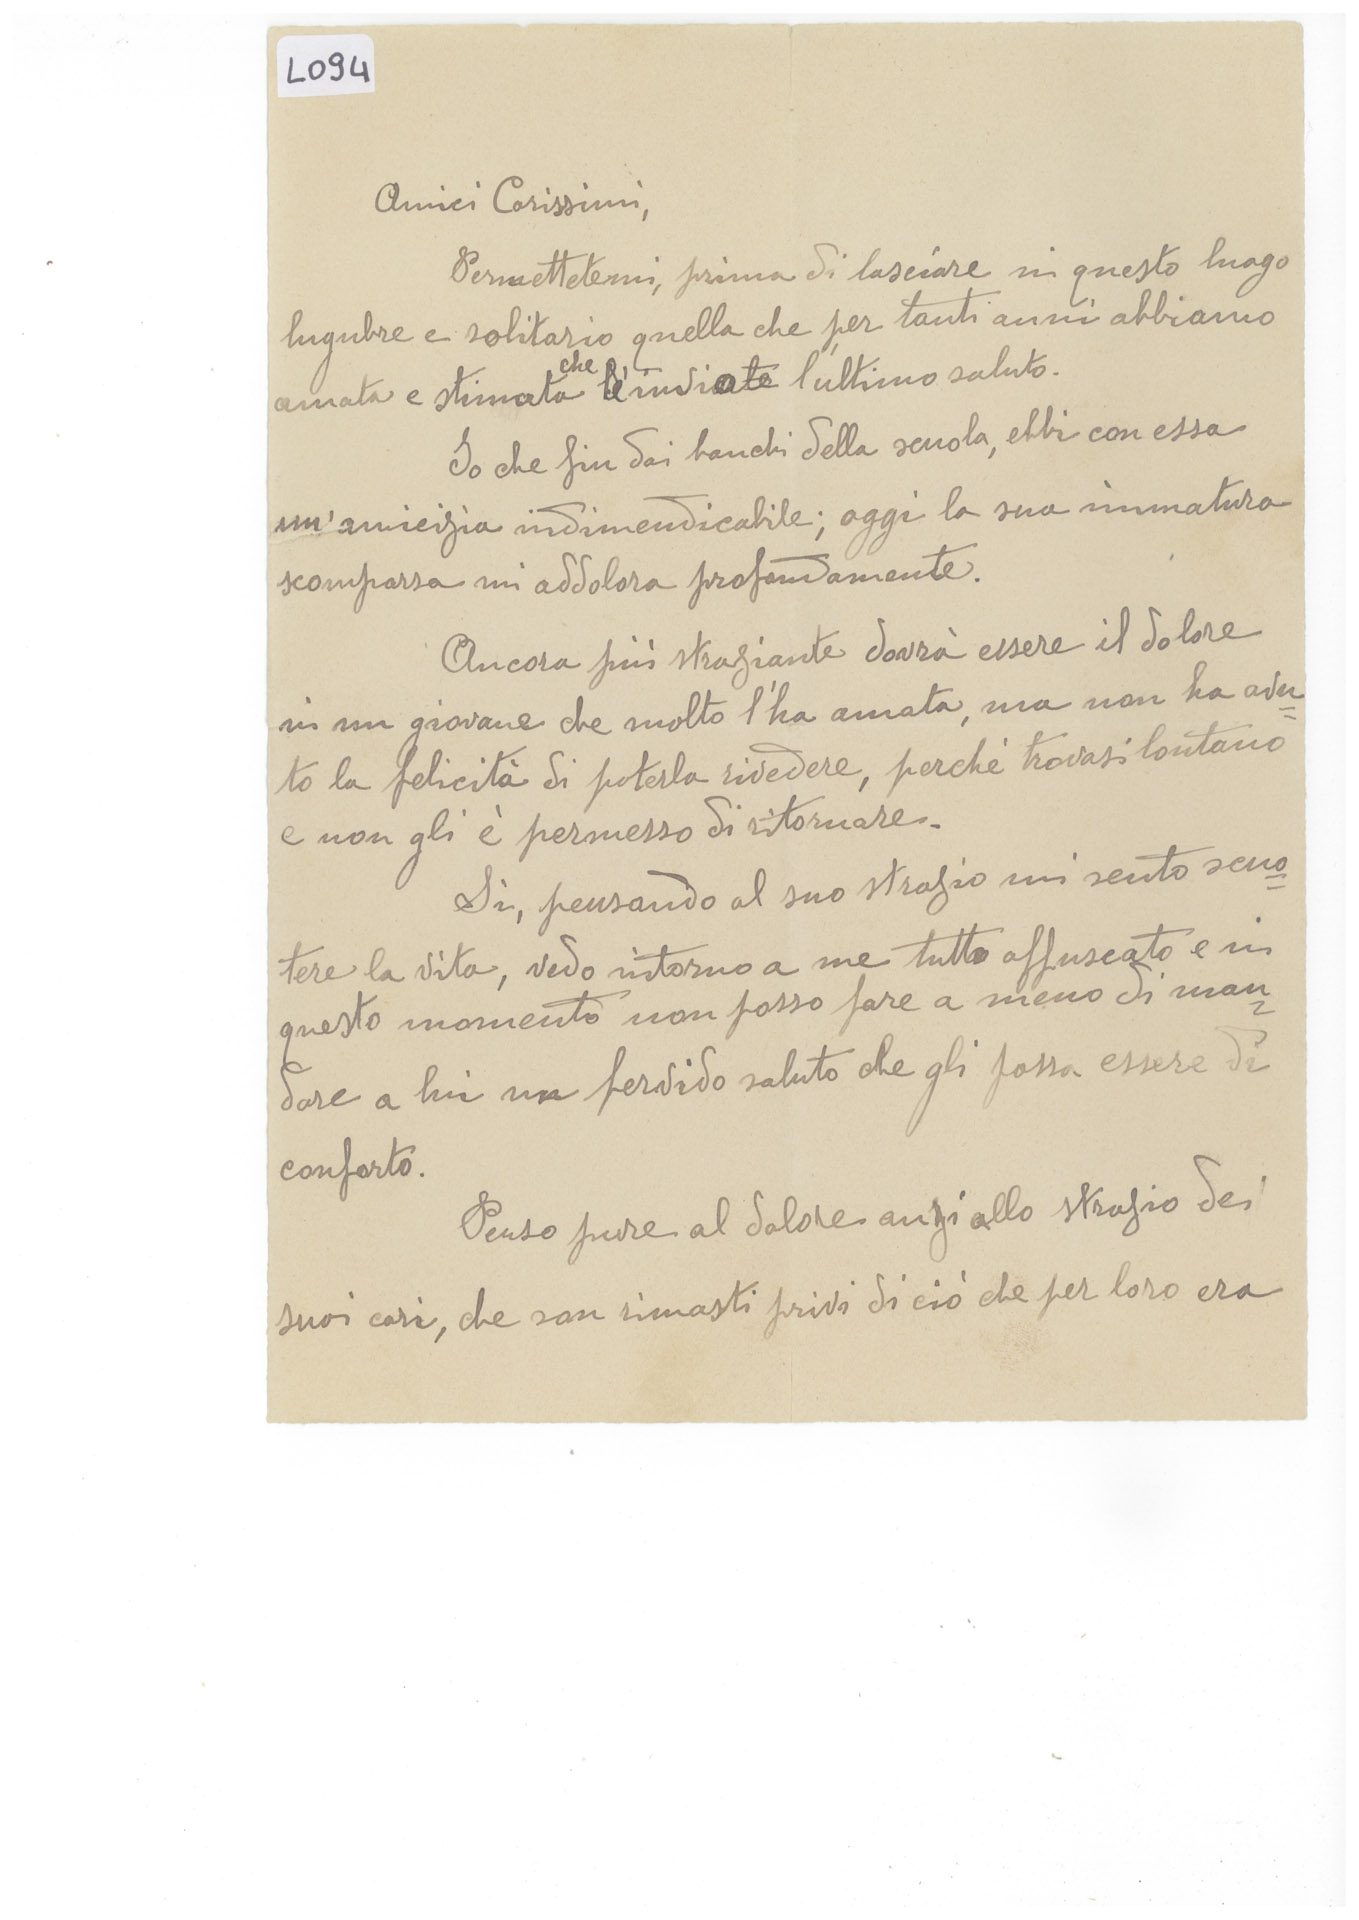 L094
Amici Carissimi,
Permettetemi, prima di lasciare in questo luogo
lugubre e solitario quella che per tanti anni abbiamo
amata e stimata che l'inviate l'ultimo saluto.
Io che fin dai banchi della scuola, ebbi con essa
un'amicizia indimendicabile; oggi la sua immatura
scomparsa mi addolora profondamente.
Ancora più straziante dovrà essere il dolore
in un giovane che molto l'ha amata, ma non ha avu=
to la felicità di poterla rivedere, perché trovasi lontano
e non gli è permesso di ritornare.
Si, pensando al suo strazio mi sento scuo=
tere la vita, vedo intorno a me tutto offuscato e in
questo momento non posso fare a meno di man=
dare a lui un fervido saluto che gli possa essere di
conforto.
Penso pure al dolore anzi allo strazio dei
suoi cari, che son rimasti privi di ciò che per loro era